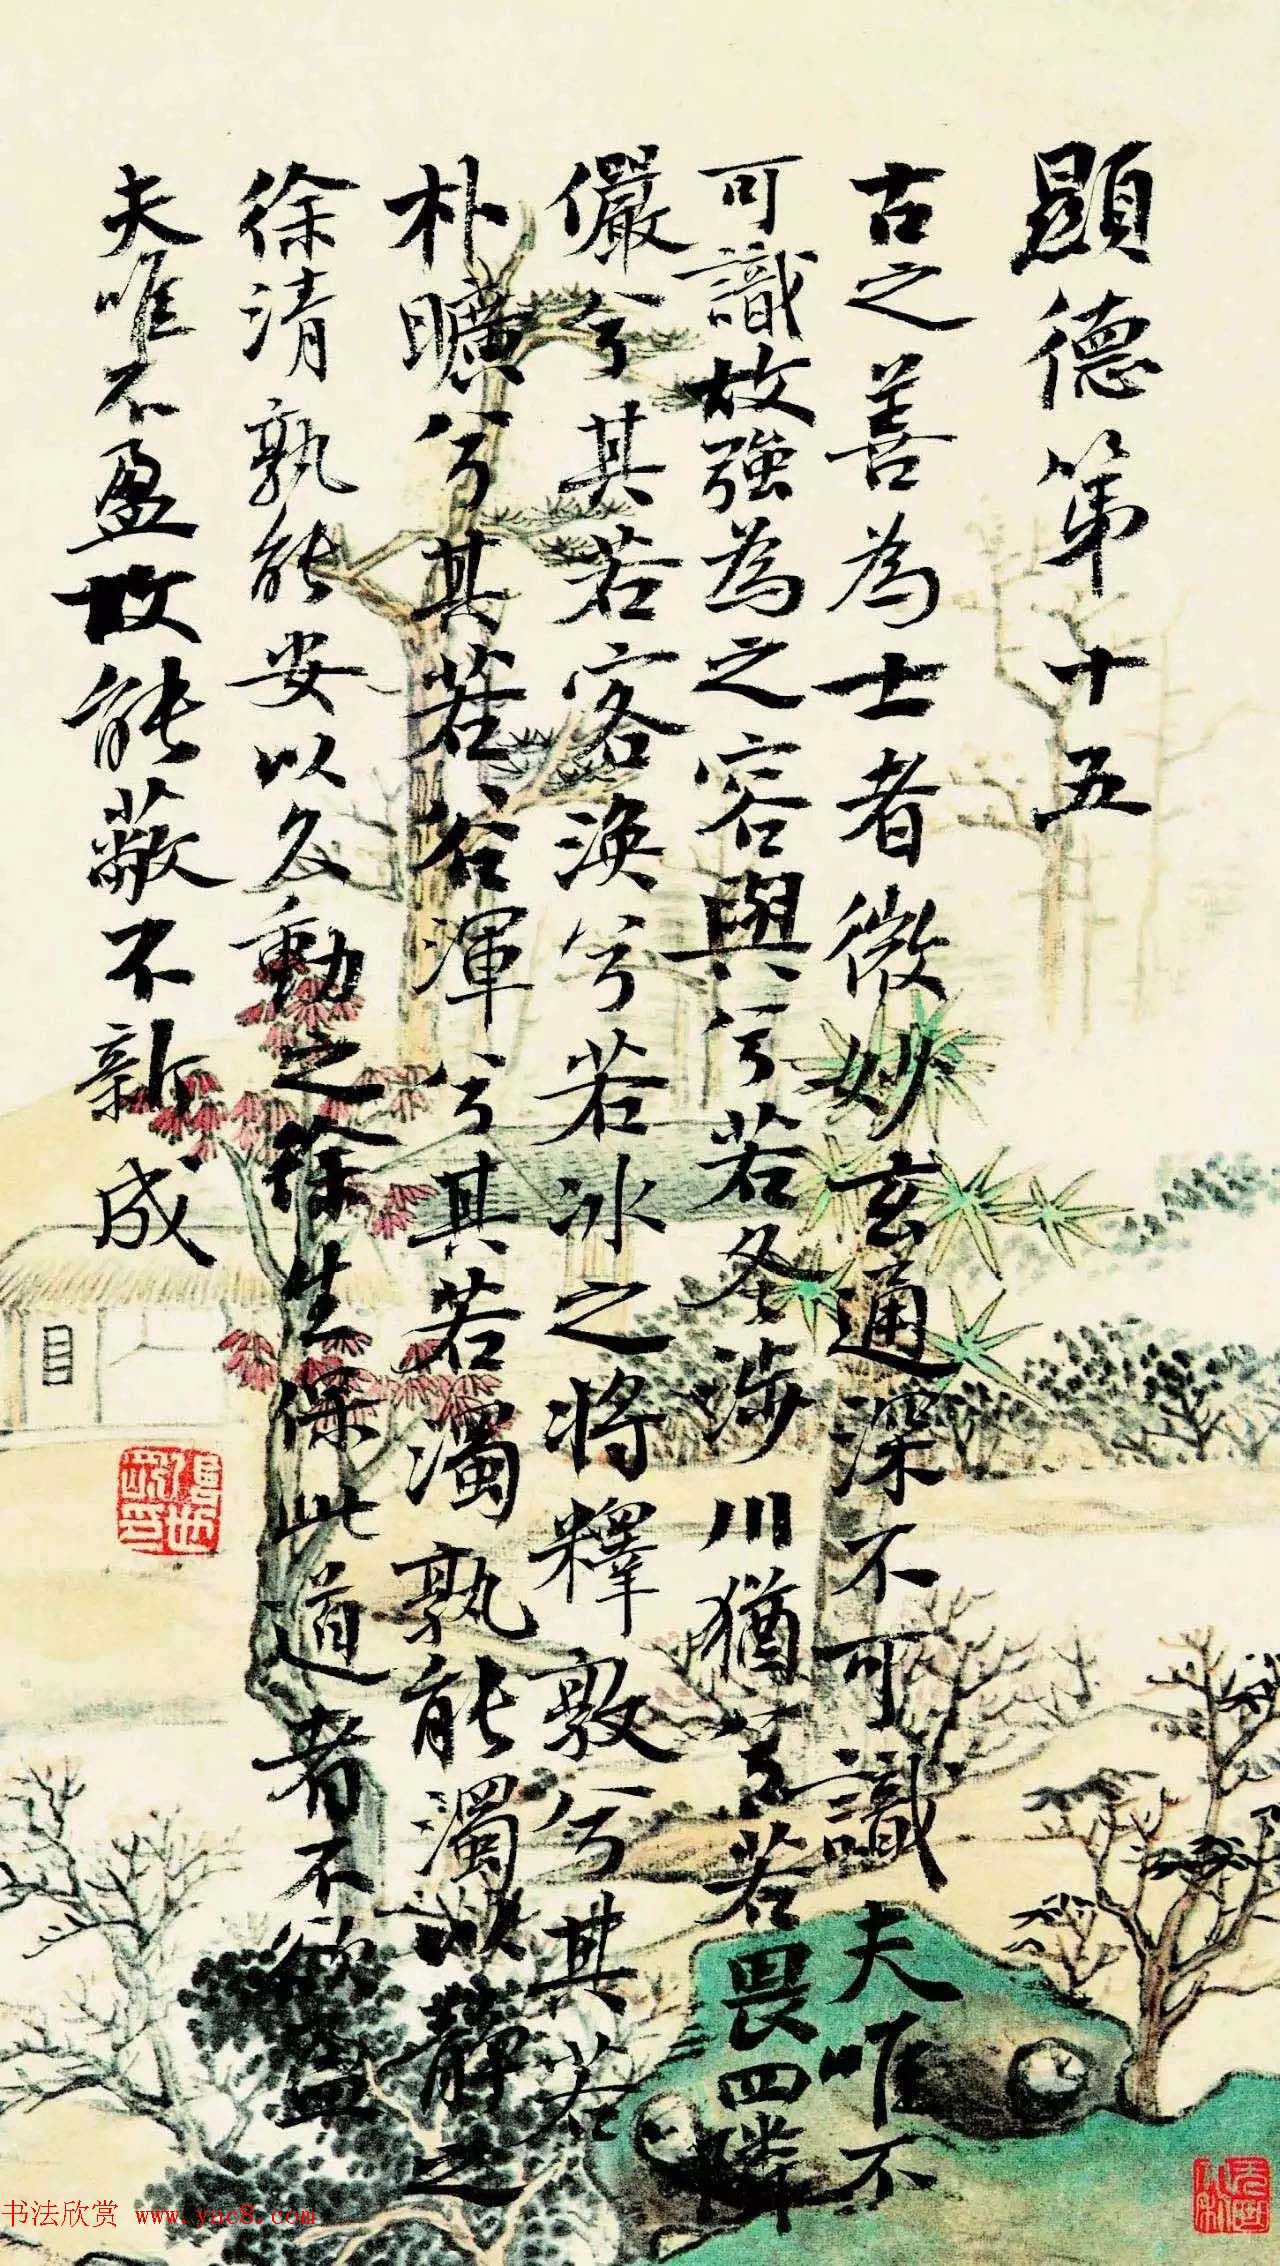 顯德第十五
古之善為士者微妙玄通深不可識夫唯不
可識故強為之容與兮若冬涉川猶兮若畏四鄰
儼兮其若客渙兮若冰之將釋敦兮其若
朴曠兮其若谷渾兮其若濁孰能濁以靜之
徐清孰能安以久動之徐生保此道者不欲盈
夫唯不盈故能蔽不新成
书法欣赏 www.yac8.com